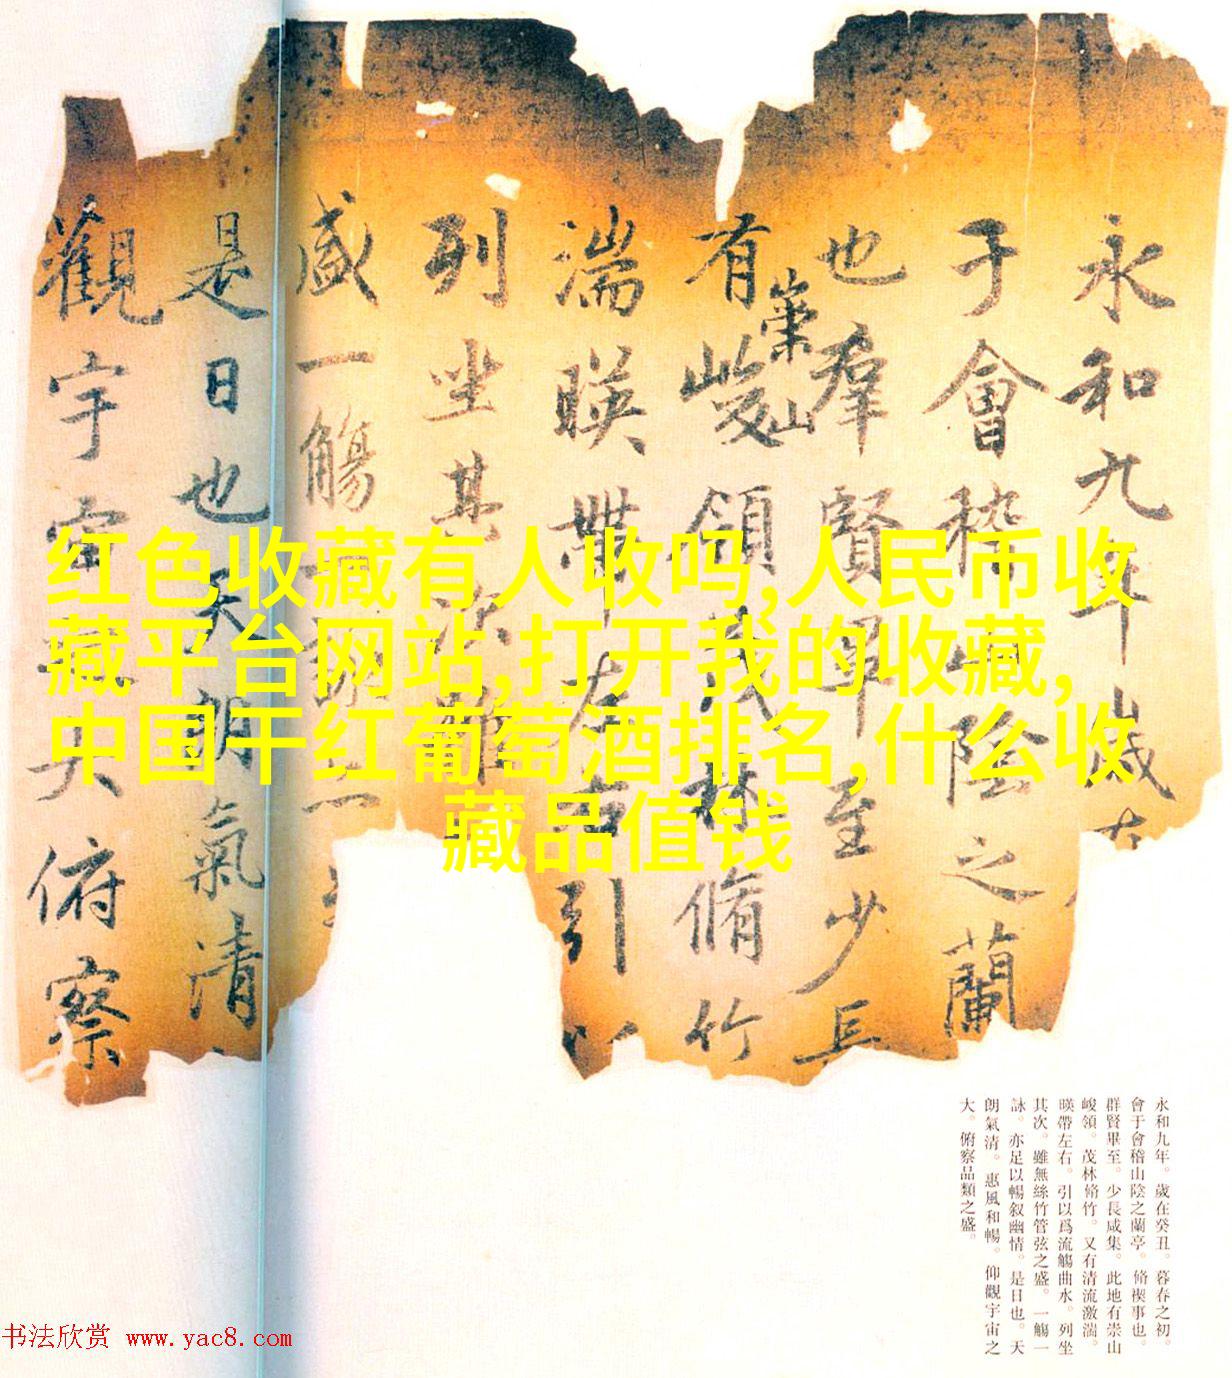 永和九年歲在
于會稽山陰之蘭
也羣賢畢至少長
有崇山峻領茂林脩竹
湍暎帶左右引以
列坐其次雖
盛一觴一詠亦
是日也天朗氣清
觀宇宙之大俯察
红色收藏有人收吗,人民币收
藏平台网站,打开我的收藏,
中国干红葡萄酒排名,什么收
藏品值钱
永和九年。歲在癸丑。暮春之初。
會于會稽山陰之蘭亭。脩禊事也。
群賢畢至。少長咸集。此地有崇山
峻領。茂林脩竹。又有清流激湍。
暎帶左右。引以爲流觴曲水。列坐
其次。雖無絲竹管弦之盛。一觴一
詠。亦足以暢叙幽情。是日也。天
朗氣清。惠風和暢。仰觀宇宙之
大。俯察品類之盛。
书法欣赏 www.yac8.com